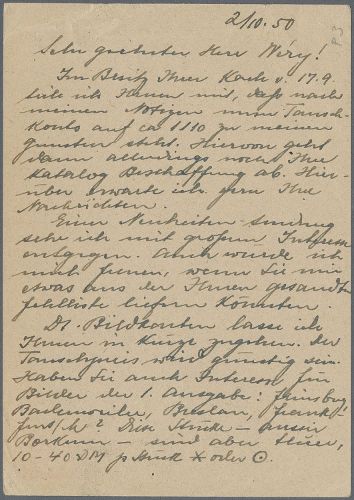 2/10.50
Sehr geehrter Herr Wéry!
Im Besitz Ihrer Karte v. 17.9.
teile ich Ihnen mit, daß nach
meinen Notizen unser Tausch-
konto auf ca 1110 zu meinen
gunsten steht. Hiervon geht
dann allerdings noch Ihre
Katalog Beschaffung ab. Hier-
über erwarte ich gern Ihre
Nachrichten.
Einer Neuheiten-sendung
sehe ich mit großem Interesse
entgegen. Auch würde ich
mich freuen, wenn Sie mir
etwas aus der Ihnen gesandten
fehlliste liefern könnten.
Dt. Bildkarten lasse ich
Ihnen in Kürze zugehen. Der
Tauschpreis wird günstig sein.
Haben Sie auch Interesse für
Bilder der 1. Ausgabe:
Badenweiler, Breslau, Frank-
furt/M? Diese Stücke - ausser
Borkum - sind aber teuer,
10-40 DM p Stück * oder ⊙.